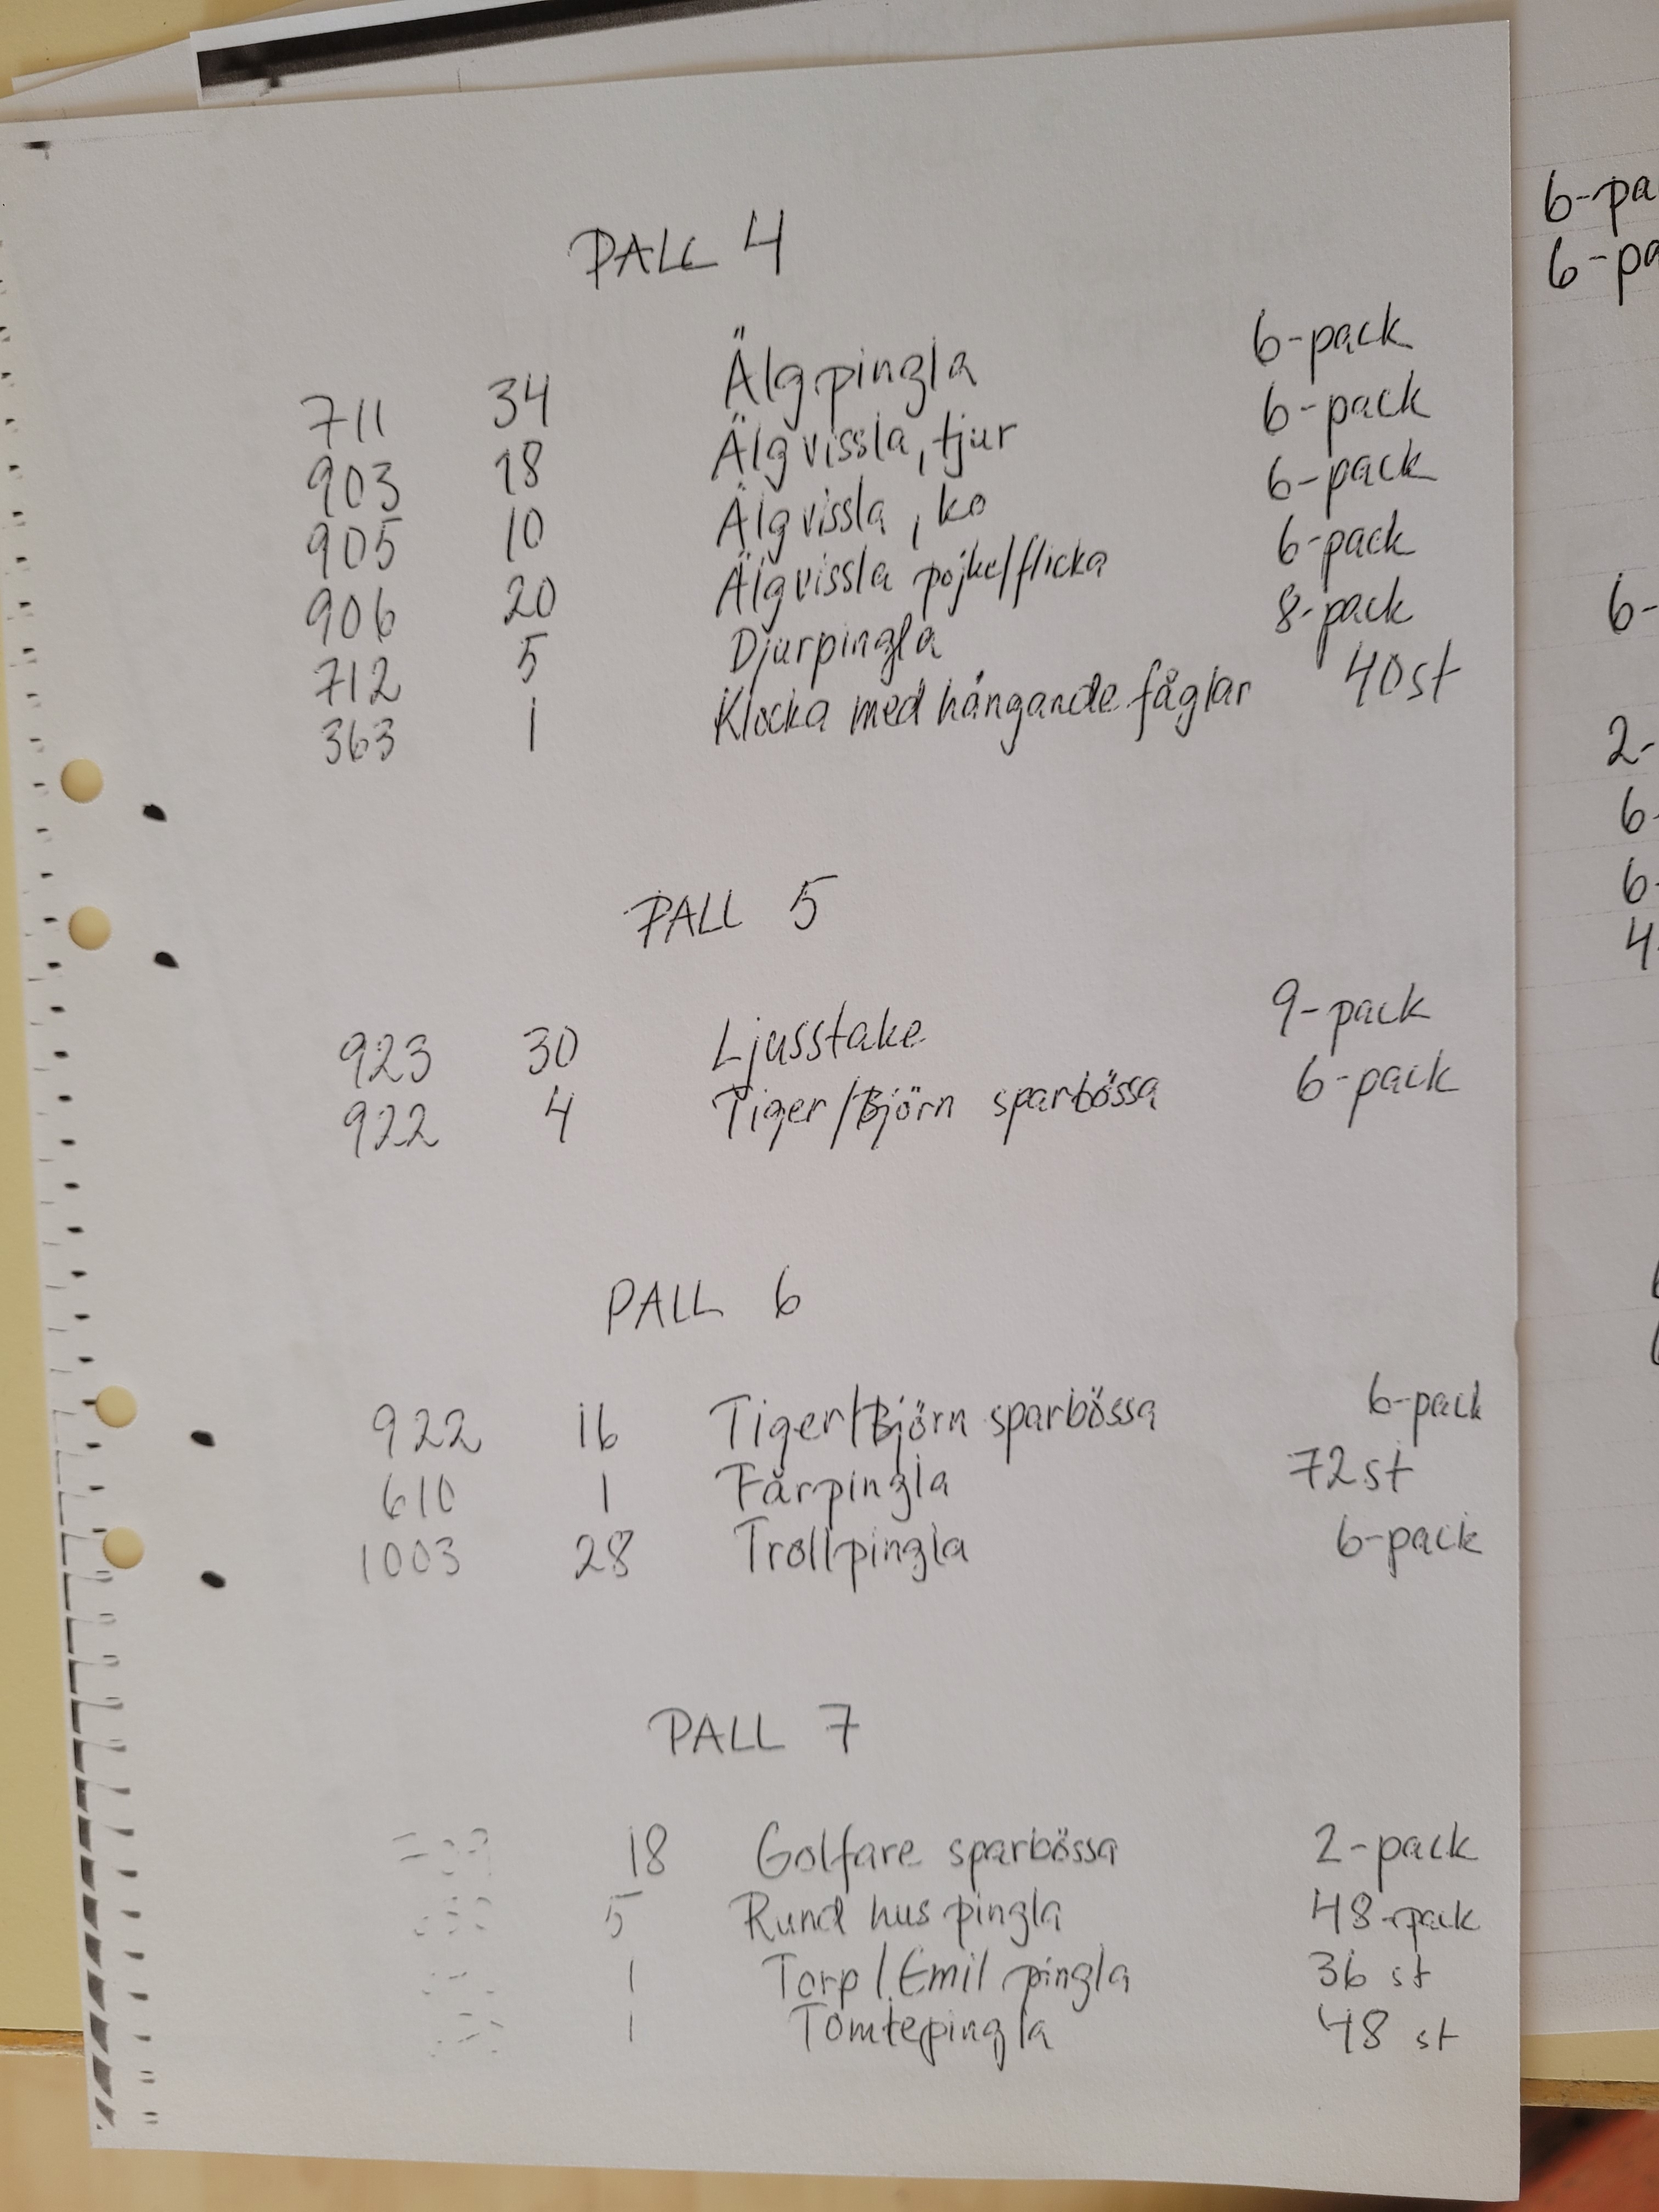 PALL 4
711 34 Älgpingla 6-pack
903 18 Älgvissla, tjur 6-pack
905 10 Älgvissla, ko 6-pack
906 20 Älgvissla pojke/flicka 6-pack
712 5 Djurpingla 8-pack
363 1 Klocka med hängande fåglar 40st
PALL 5
923 30 Ljusstake 9-pack
922 4 Tiger/Björn sparbössa 6-pack
PALL 6
922 16 Tiger/Björn sparbössa 6-pack
610 1 Fårpingla 72st
1003 28 Trollpingla 6-pack
PALL 7
18 Golfare sparbössa 2-pack
5 Rund hus pingla 48-pack
1 Torp/Emil pingla 36 st
1 Tomtepingla 48 st
6-pa
6-pa
6-
2-
6-
6-
4-